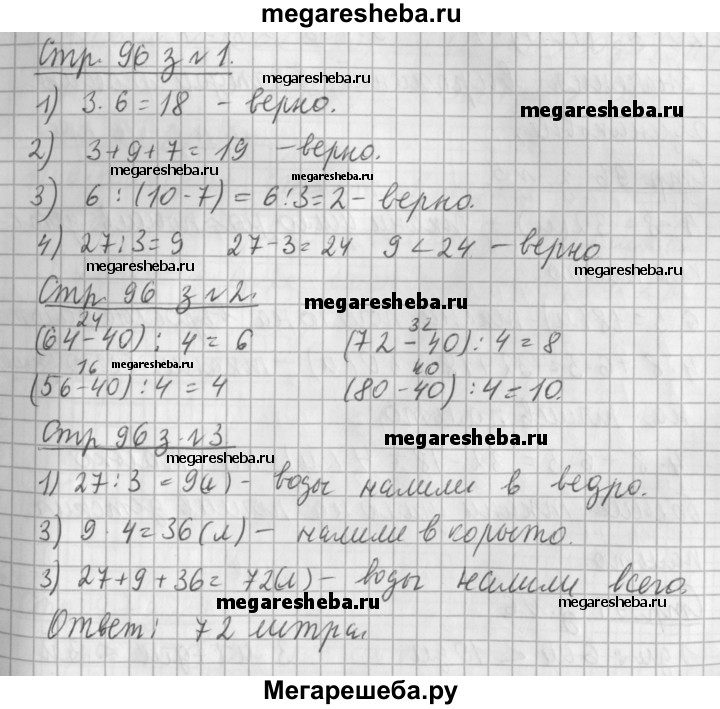 megaresheba.ru
Стр. 96 з №1.
megaresheba.ru
1) 3·6=18 - верно.
megaresheba.ru
2) 3+9+7=19 - верно.
megaresheba.ru
3) 6:(10-7)=6:3=2 - верно.
megaresheba.ru
4) 27:3=9 27-3=24 9<24 - верно
megaresheba.ru megaresheba.ru
Стр 96 з №2.
megaresheba.ru
24 32
(64-40):4=6 (72-40):4=8
16 megaresheba.ru 40
(56-40):4=4 (80-40):4=10.
Стр 96 з №3
megaresheba.ru
megaresheba.ru
1) 27:3=9(л) - воды налили в ведро.
3) 9·4=36(л) - налили в корыто.
3) 27+9+36=72(л) - воды налили всего.
megaresheba.ru megaresheba.ru
Ответ: 72 литра.
Мегарешеба.ру